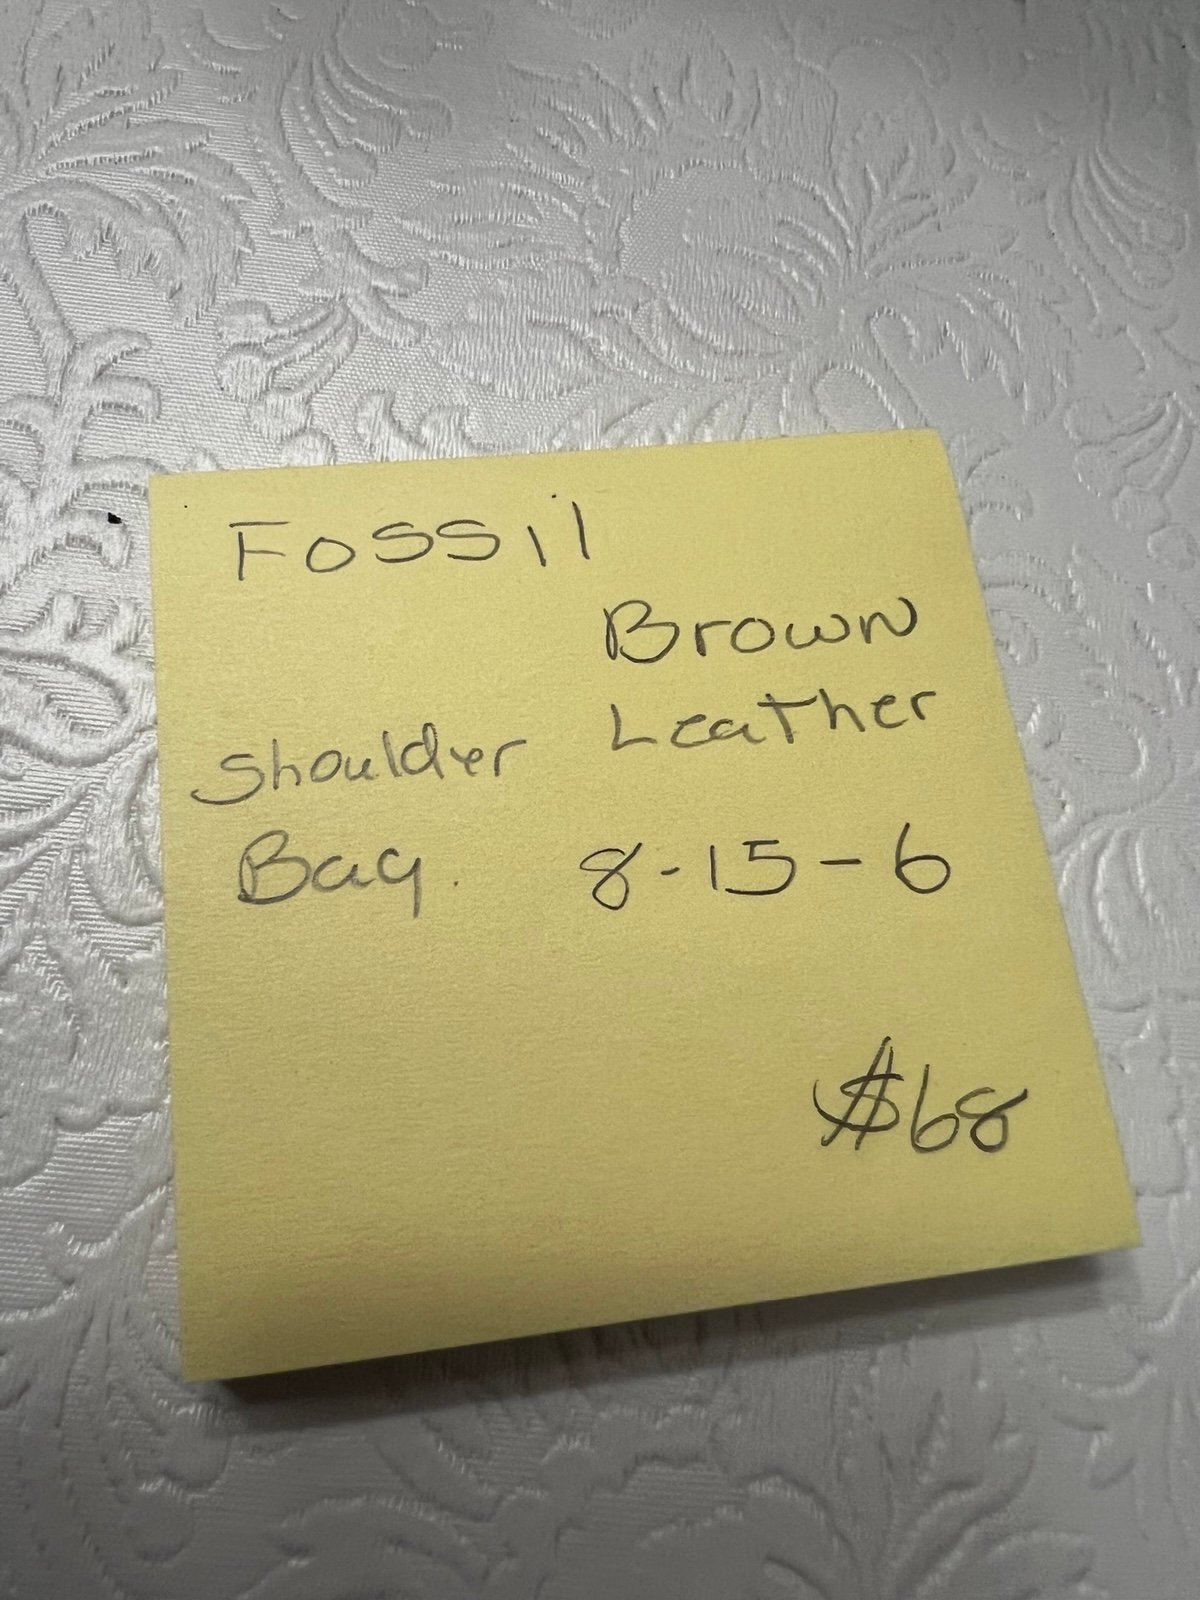 Fossil
Brown
Leather
Shoulder
Bag. 8-15-6
$68